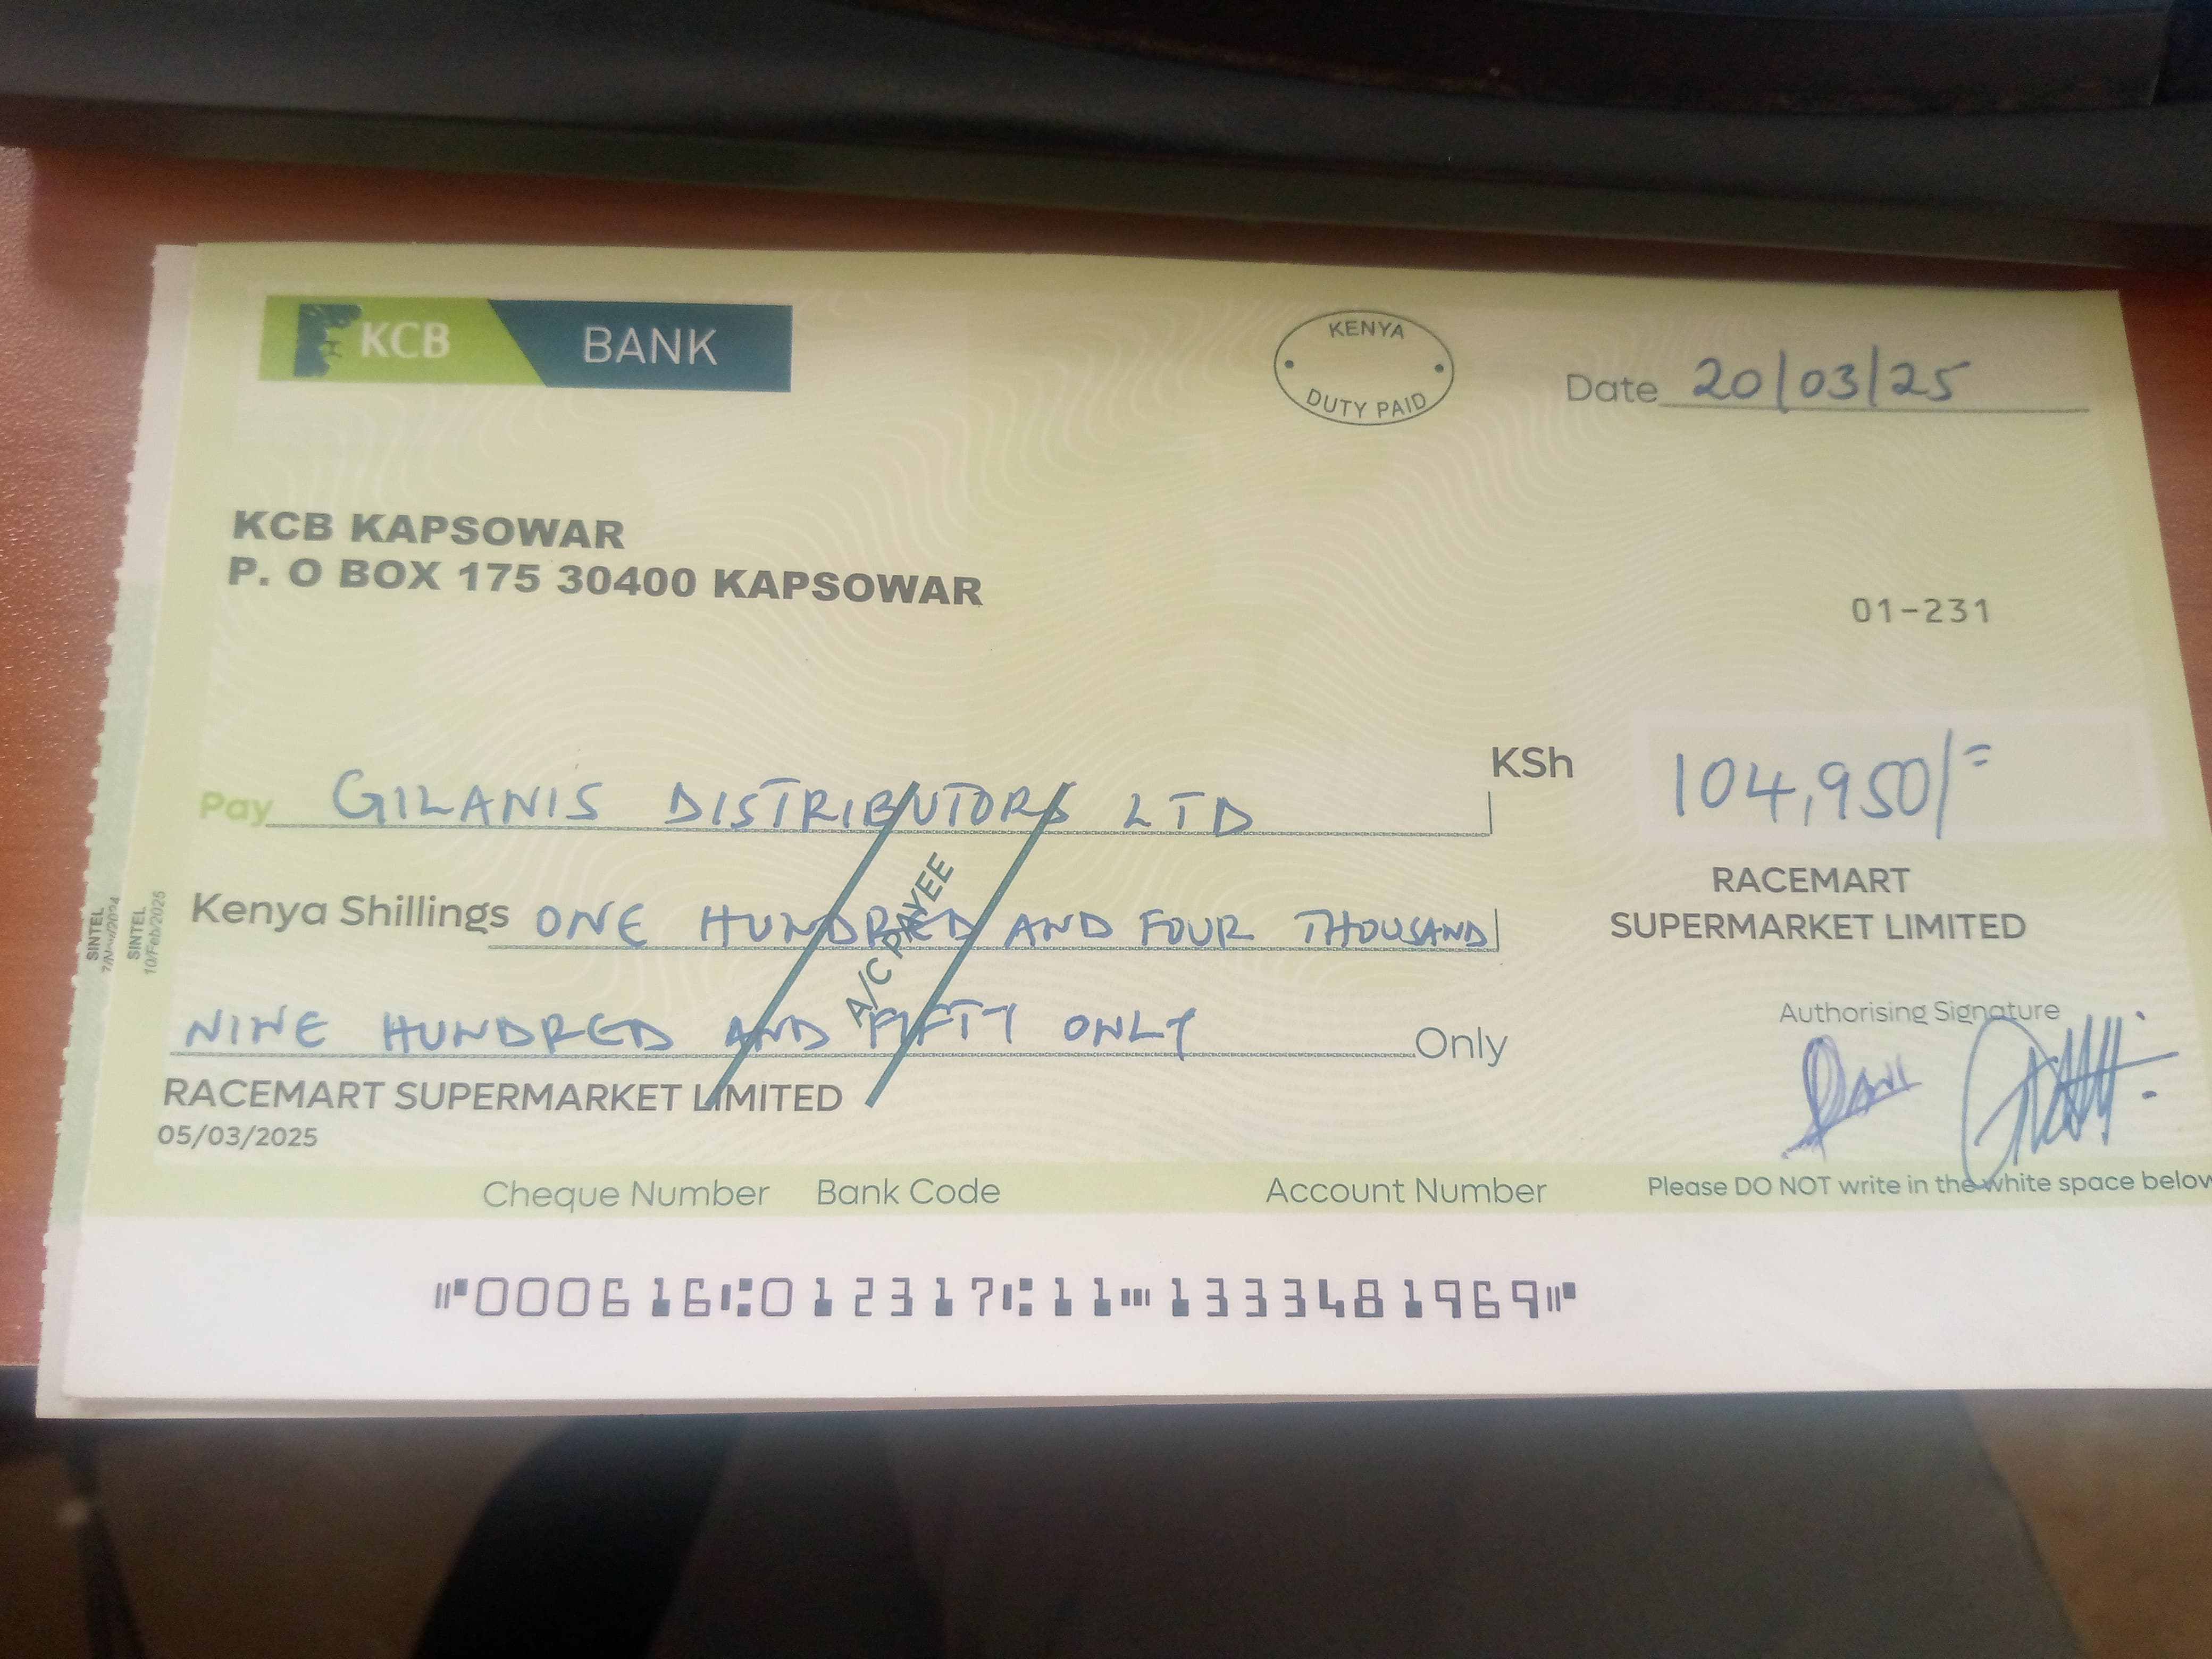 KCB BANK
KENYA
DUTY PAID
Date 20/03/25
KCB KAPSOWAR
P. O BOX 175 30400 KAPSOWAR
01-231
Pay GILANIS DISTRIBUTORS LTD
KSh 104,950/=
A/C PAYEE
Kenya Shillings ONE HUNDRED AND FOUR THOUSAND
NINE HUNDRED AND FIFTY ONLY Only
RACEMART
SUPERMARKET LIMITED
Authorising Signature
RACEMART SUPERMARKET LIMITED
05/03/2025
SINTEL
SINTEL
10/Feb/2025
Cheque Number Bank Code Account Number Please DO NOT write in the white space below
⑈000616⑆012317⑆11⑉1333481969⑈